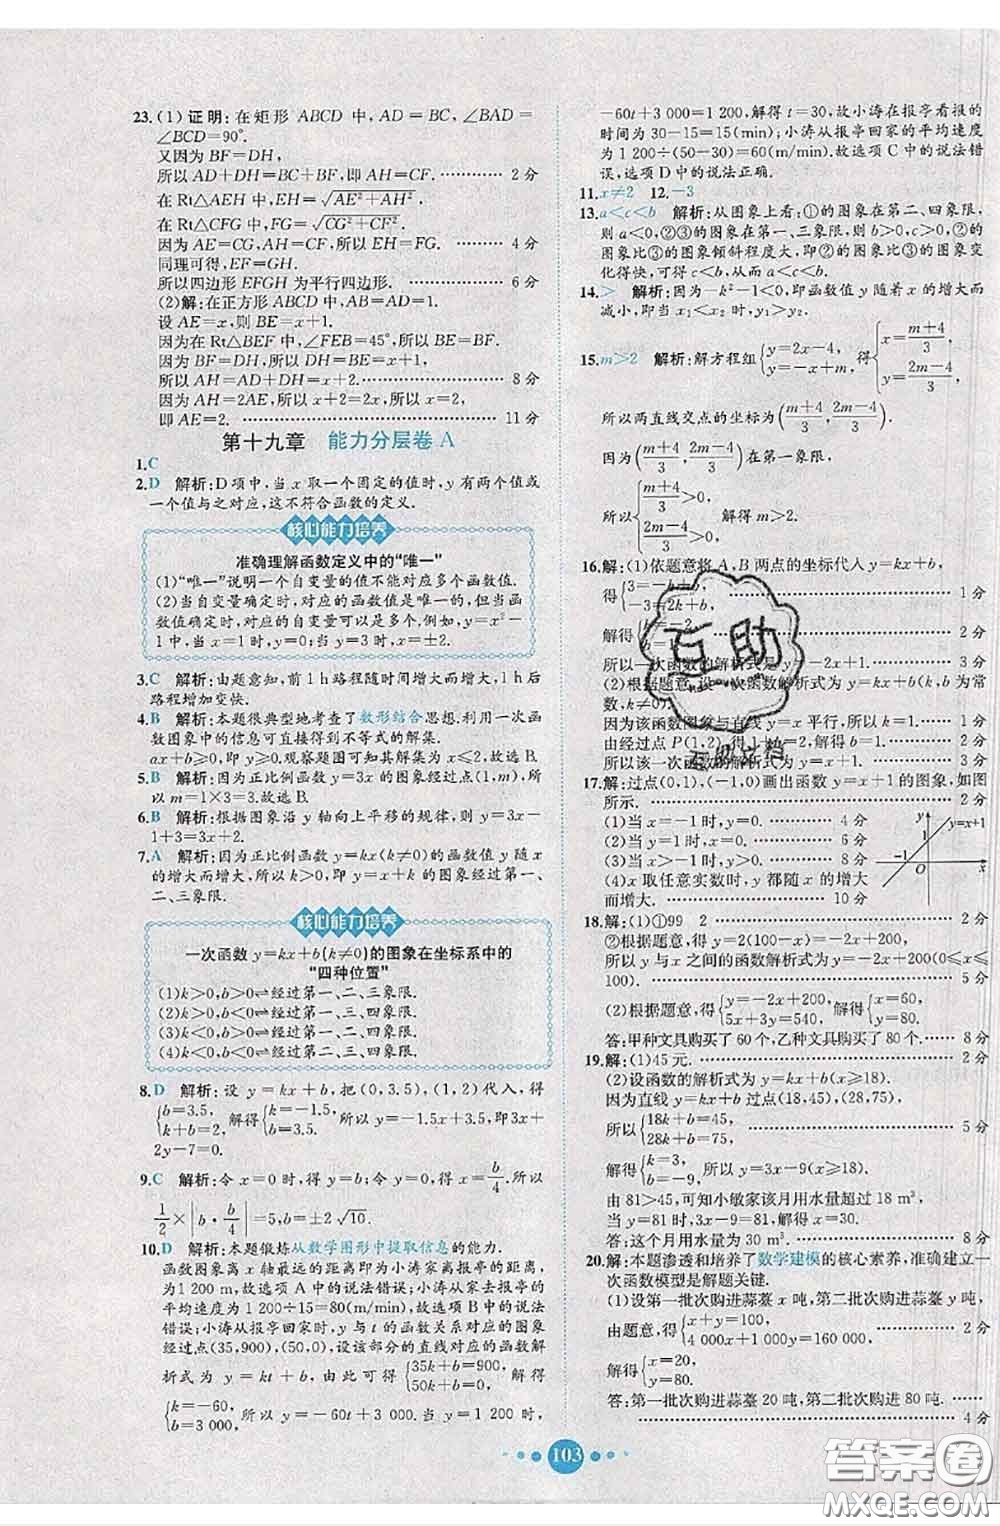 23.(1)证明:在矩形 ABCD 中,AD=BC,∠BAD=
∠BCD=90°.
又因为 BF=DH,
所以 AD+DH=BC+BF,即 AH=CF. ………… 2 分
在 Rt△AEH 中,EH=√(AE²+AH²).
在 Rt△CFG 中,FG=√(CG²+CF²).
因为 AE=CG,AH=CF,所以 EH=FG. ………… 4 分
同理可得,EF=GH.
所以四边形 EFGH 为平行四边形. ………… 6 分
(2)解:在正方形 ABCD 中,AB=AD=1.
设 AE=x,则 BE=x+1.
因为在 Rt△BEF 中,∠FEB=45°,所以 BE=BF.
因为 BF=DH,所以 DH=BE=x+1,
所以 AH=AD+DH=x+2. ………… 8 分
因为 AH=2AE,所以 x+2=2x,所以 x=2,
即 AE=2. ………… 11 分
第十九章 能力分层卷 A
1.C
2.D 解析:D 项中,当 x 取一个固定的值时,y 有两个值或
一个值与之对应,这不符合函数的定义.
核心能力培养
准确理解函数定义中的“唯一”
(1)“唯一”说明一个自变量的值不能对应多个函数值.
(2)当自变量确定时,对应的函数值是唯一的,但当函
数值确定时,对应的自变量可以是多个,例如,y=x²-
1 中,当 x=1 时,y=0;当 y=3 时,x=±2.
3.C 解析:由题意知,前 1 h 路程随时间增大而增大,1 h 后
路程增加变快.
4.B 解析:本题很典型地考查了数形结合思想.利用一次函
数图象中的信息可直接得到不等式的解集.
ax+b≥0,即图象观察发现解集为 x≤2,故选 B.
5.B 解析:因为正比例函数 y=3x 的图象经过点(1,m),所
以 m=1×3=3.故选 B.
6.B 解析:根据图象沿 y 轴向上平移的规律,则 y=3x-
1+3=3x+2.
7.A 解析:因为正比例函数 y=kx(k≠0)的函数值 y 随 x
的增大而增大,所以 k>0,即 y=kx+k 的图象经过第一、
二、三象限.
核心能力培养
一次函数 y=kx+b(k≠0)的图象在坐标系中的
“四种位置”
(1)k>0,b>0⇌经过第一、二、三象限.
(2)k>0,b<0⇌经过第一、三、四象限.
(3)k<0,b>0⇌经过第一、二、四象限.
(4)k<0,b<0⇌经过第二、三、四象限.
8.D 解析:设 y=kx+b,把(0,3.5),(1,2)代入,得
{b=3.5, k+b=2, 解得{k=-1.5, b=3.5, 所以 y=-1.5x+3.5,即3x+
2y-7=0.
9.C 解析:令 x=0 时,得 y=b;令 y=0 时,得 x=b/4.所以
1/2×|b·b/4|=5,b=±2√10.
10.D 解析:本题锻炼从数学图形中提取信息的能力.
函数图象离 x 轴最远的距离,即为小涛家离报亭的距离,
为1 200 m,故选项 A 中的说法错误;小涛从家去报亭的
平均速度为 1 200÷15=80(m/min),故选项 B 中的说法
错误;小涛从报亭回家时,y 与 t 的函数关系对应的图象
经过点(35,900),(50,0),设该部分的直线对应的函数解
析式为 y=kt+b,所以可得{35k+b=900, 50k+b=0, 解得
{k=-60, b=3 000, 所以 y=-60t+3 000.当 y=1 200 时,
-60t+3 000=1 200,解得 t=30,故小涛在报亭看报的
时间为 30-15=15(min);小涛从报亭回家的平均速度
为 1 200÷(50-30)=60(m/min),故选项 C 中的说法错
误,选项 D 中的说法正确.
11.x≠2 12.-3
13.a<c<b 解析:从图象上看:①的图象在第二、四象限,
则 a<0,②③的图象在第一、三象限,所以 b>0,c>0,②的
图象比③的图象倾斜程度大,即②的图象比③的图象
变化得快,可得 c<b,从而 a<c<b.
14.> 解析:因为-k²-1<0,即函数值 y 随着 x 的增大而
减小,即当 x₁<x₂ 时,y₁>y₂.
15.m>2 解析:解方程组{y=2x-4, y=-x+m, 得{x=(m+4)/3, y=(2m-4)/3,
所以两直线交点的坐标为((m+4)/3,(2m-4)/3).
因为((m+4)/3,(2m-4)/3)在第一象限,
所以{(m+4)/3>0, (2m-4)/3>0, 解得 m>2.
16.解:(1)依题意将 A,B 两点的坐标代入 y=kx+b,
得{3=-k+b, -3=2k+b, ………… 1 分
解得 ………… 2 分
所以一次函数的解析式是 y= ………… 3 分
(2)根据题意,设一次函数解析式为 y=kx+b(b 为常
数,k≠0).
因为该函数图象与直线 y=x 平行,所以 k=1. ……… 1分
由经过点 P(1,2),得1+b=2,解得 b=1. ………… 2分
所以该一次函数的解析式为 y=x+1. ………… 3分
17.解:过点(0,1),(-1,0)画出函数 y=x+1 的图象,如图
所示. ………… 2 分
(1)当 x=-1 时,y=0. ………… 4 分
(2)当 x>-1 时,y>0. ………… 6 分
(3)当 x>-1 时,y>0. ………… 8 分
(4)x 取任意实数时,y 都随 x 的增大
而增大. ………… 10 分
y
y=x+1
1
-1
O
x
18.解:(1)①99 2 ………… 2 分
②根据题意,得 y=2(100-x)=-2x+200.
所以 y 与 x 之间的函数解析式为 y=-2x+200(0≤x≤
100). ………… 5 分
(2)根据题意,得{y=-2x+200, 5x+3y=540, 解得{x=60, y=80.
答:甲种文具购买了 60 个,乙种文具购买了 80 个. …… 8 分
19.解:(1)45 元. ………… 2 分
(2)设函数的解析式为 y=kx+b(x>18).
因为直线 y=kx+b 过点(18,45),(28,75),
所以{18k+b=45, 28k+b=75, ………… 5 分
解得{k=3, b=-9, 所以 y=3x-9(x>18).
由 81>45,可知小敏家该月用水量超过 18 m³,
当 y=81 时,3x-9=81,解得 x=30.
答:这个月用水量为 30 m³. ………… 8 分
20.解:本题渗透和培养了数学建模的核心素养,准确建立一
次函数模型是解题关键.
(1)设第一批次购进蒜薹 x 吨,第二批次购进蒜薹 y 吨,
由题意,得{x+y=100, 4 000x+1 000y=160 000, ………… 2 分
解得{x=20, y=80.
答:第一批次购进蒜薹 20 吨,第二批次购进 80 吨. ……
………… 4 分
103
互助
互助文档
答案圈
MXQE.COM